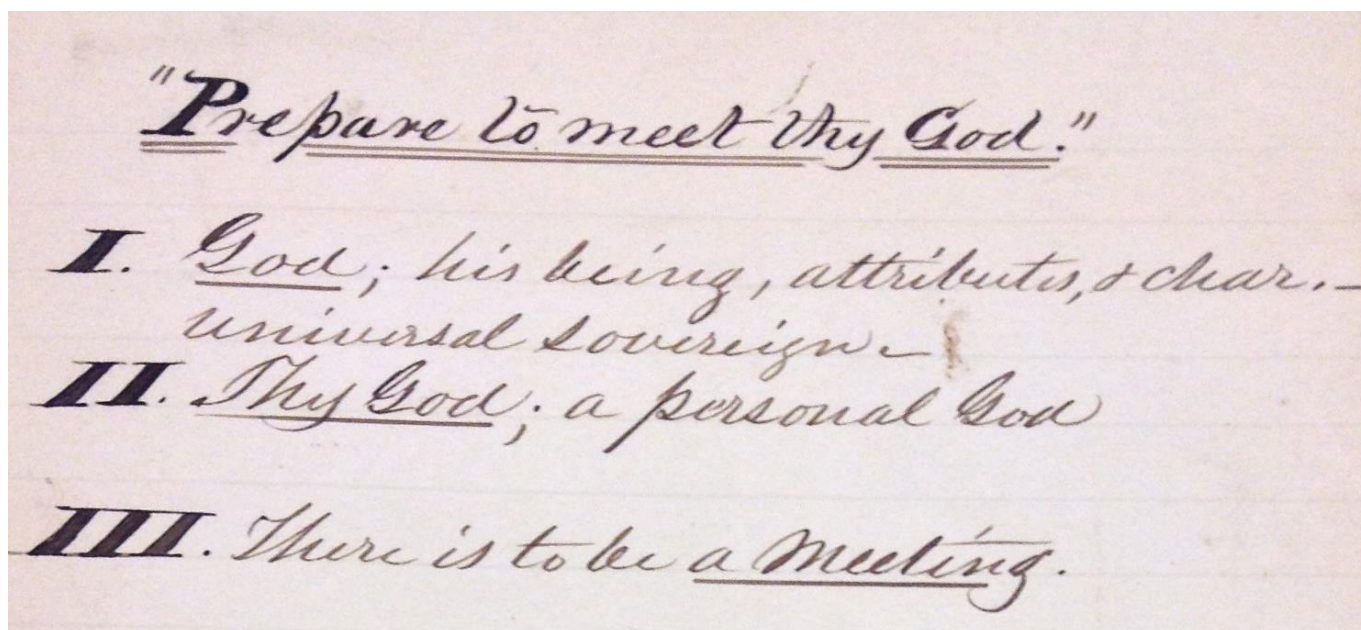 "Prepare to meet thy God."
I. God; his being, attributes, & char. –
universal sovereign –
II. Thy God; a personal God
III. There is to be a Meeting.